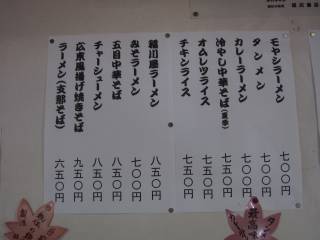 モヤシラーメン 七〇〇円
タンメン 七〇〇円
カレーラーメン 七〇〇円
冷やし中華そば(夏季) 七五〇円
オムレツライス 七五〇円
チキンライス 七五〇円
麺川屋ラーメン 八五〇円
みそラーメン 七〇〇円
五目中華そば 八五〇円
チャーシューメン 八五〇円
広東風揚げ焼きそば 九五〇円
ラーメン(支那そば) 六五〇円